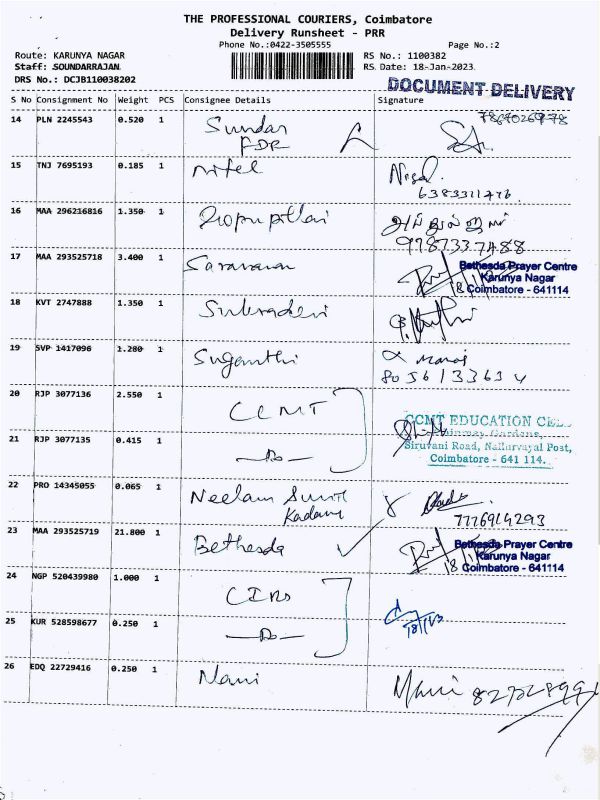 THE PROFESSIONAL COURIERS, Coimbatore
Delivery Runsheet - PRR
Phone No.:0422-3505555 Page No.:2
Route: KARUNYA NAGAR RS No.: 1100382
Staff: SOUNDARRAJAN RS Date: 18-Jan-2023
DRS No.: DCJB110038202
DOCUMENT DELIVERY
S No Consignment No Weight PCS Consignee Details Signature
14 PLN 2245543 0.520 1 Sundar
FDR
15 TNJ 7695193 0.185 1
6383311776
16 MAA 296216816 1.350 1
9787337488
17 MAA 293525718 3.400 1 Saravanan Bethesda Prayer Centre
Karunya Nagar
Coimbatore - 641114
18 KVT 2747888 1.350 1
19 SVP 1417096 1.280 1 Suganthi Manoj
8056133634
20 RJP 3077136 2.550 1 CCMT CCMT EDUCATION CELL
21 RJP 3077135 0.415 1 -Do- Siruvani Road, Nallurvayal Post,
Coimbatore - 641 114.
22 PRO 14345055 0.065 1 Neelam Sunil
Kadam 7776914293
23 MAA 293525719 21.800 1 Bethesda Bethesda Prayer Centre
Karunya Nagar
Coimbatore - 641114
24 NGP 520439980 1.000 1
25 KUR 528598677 0.250 1 -Do-
26 EDQ 22729416 0.250 1 Mani Mani